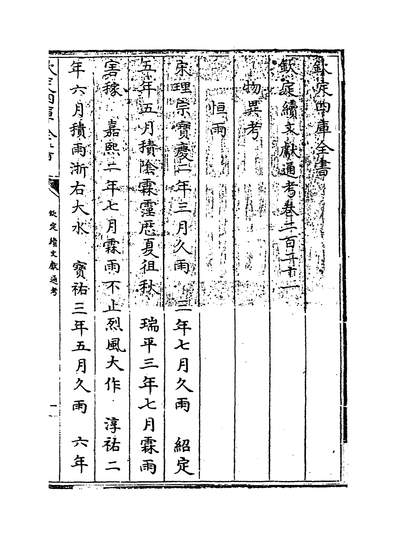 欽定四庫全書
欽定續文獻通考卷二百二十一
物異考
恒雨
宋理宗寶慶二年三月久雨 三年七月久雨 紹定
五年五月積陰霖霪歷夏徂秋 瑞平三年七月霖雨
害稼 嘉熙二年七月霖雨不止烈風大作 淳祐二
年六月積雨浙右大水 寳祐三年五月久雨 六年
欽定四庫全書
欽定續文獻通考
一